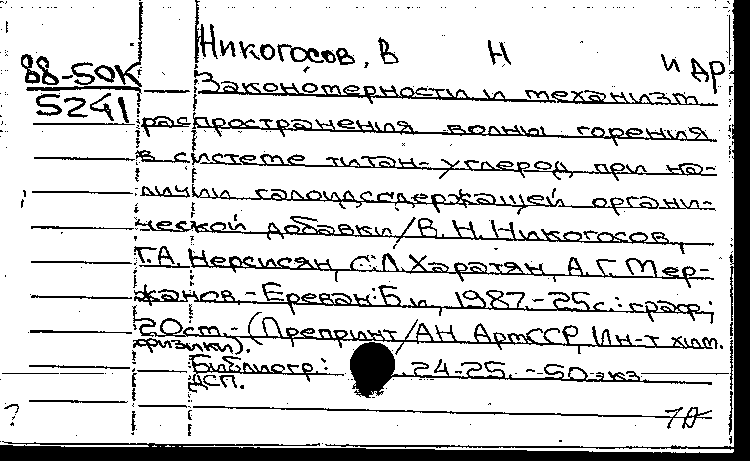 Никогосов, В Н и др
88-50К
5241
Закономерности и механизм
распространения волны горения
в системе титан-углерод при на-
личии галоидсодержащей органи-
ческой добавки/В. Н. Никогосов,
Г.А. Нерсисян, С.Л. Харатян, А. Г. Мер-
жанов.-Ереван: Б.и, 1987.-25с.: граф;
20см.- (Препринт/АН АрмССР, Ин-т хим.
физики).
Библиогр.: 24-25. - 50 экз.
ДСП.